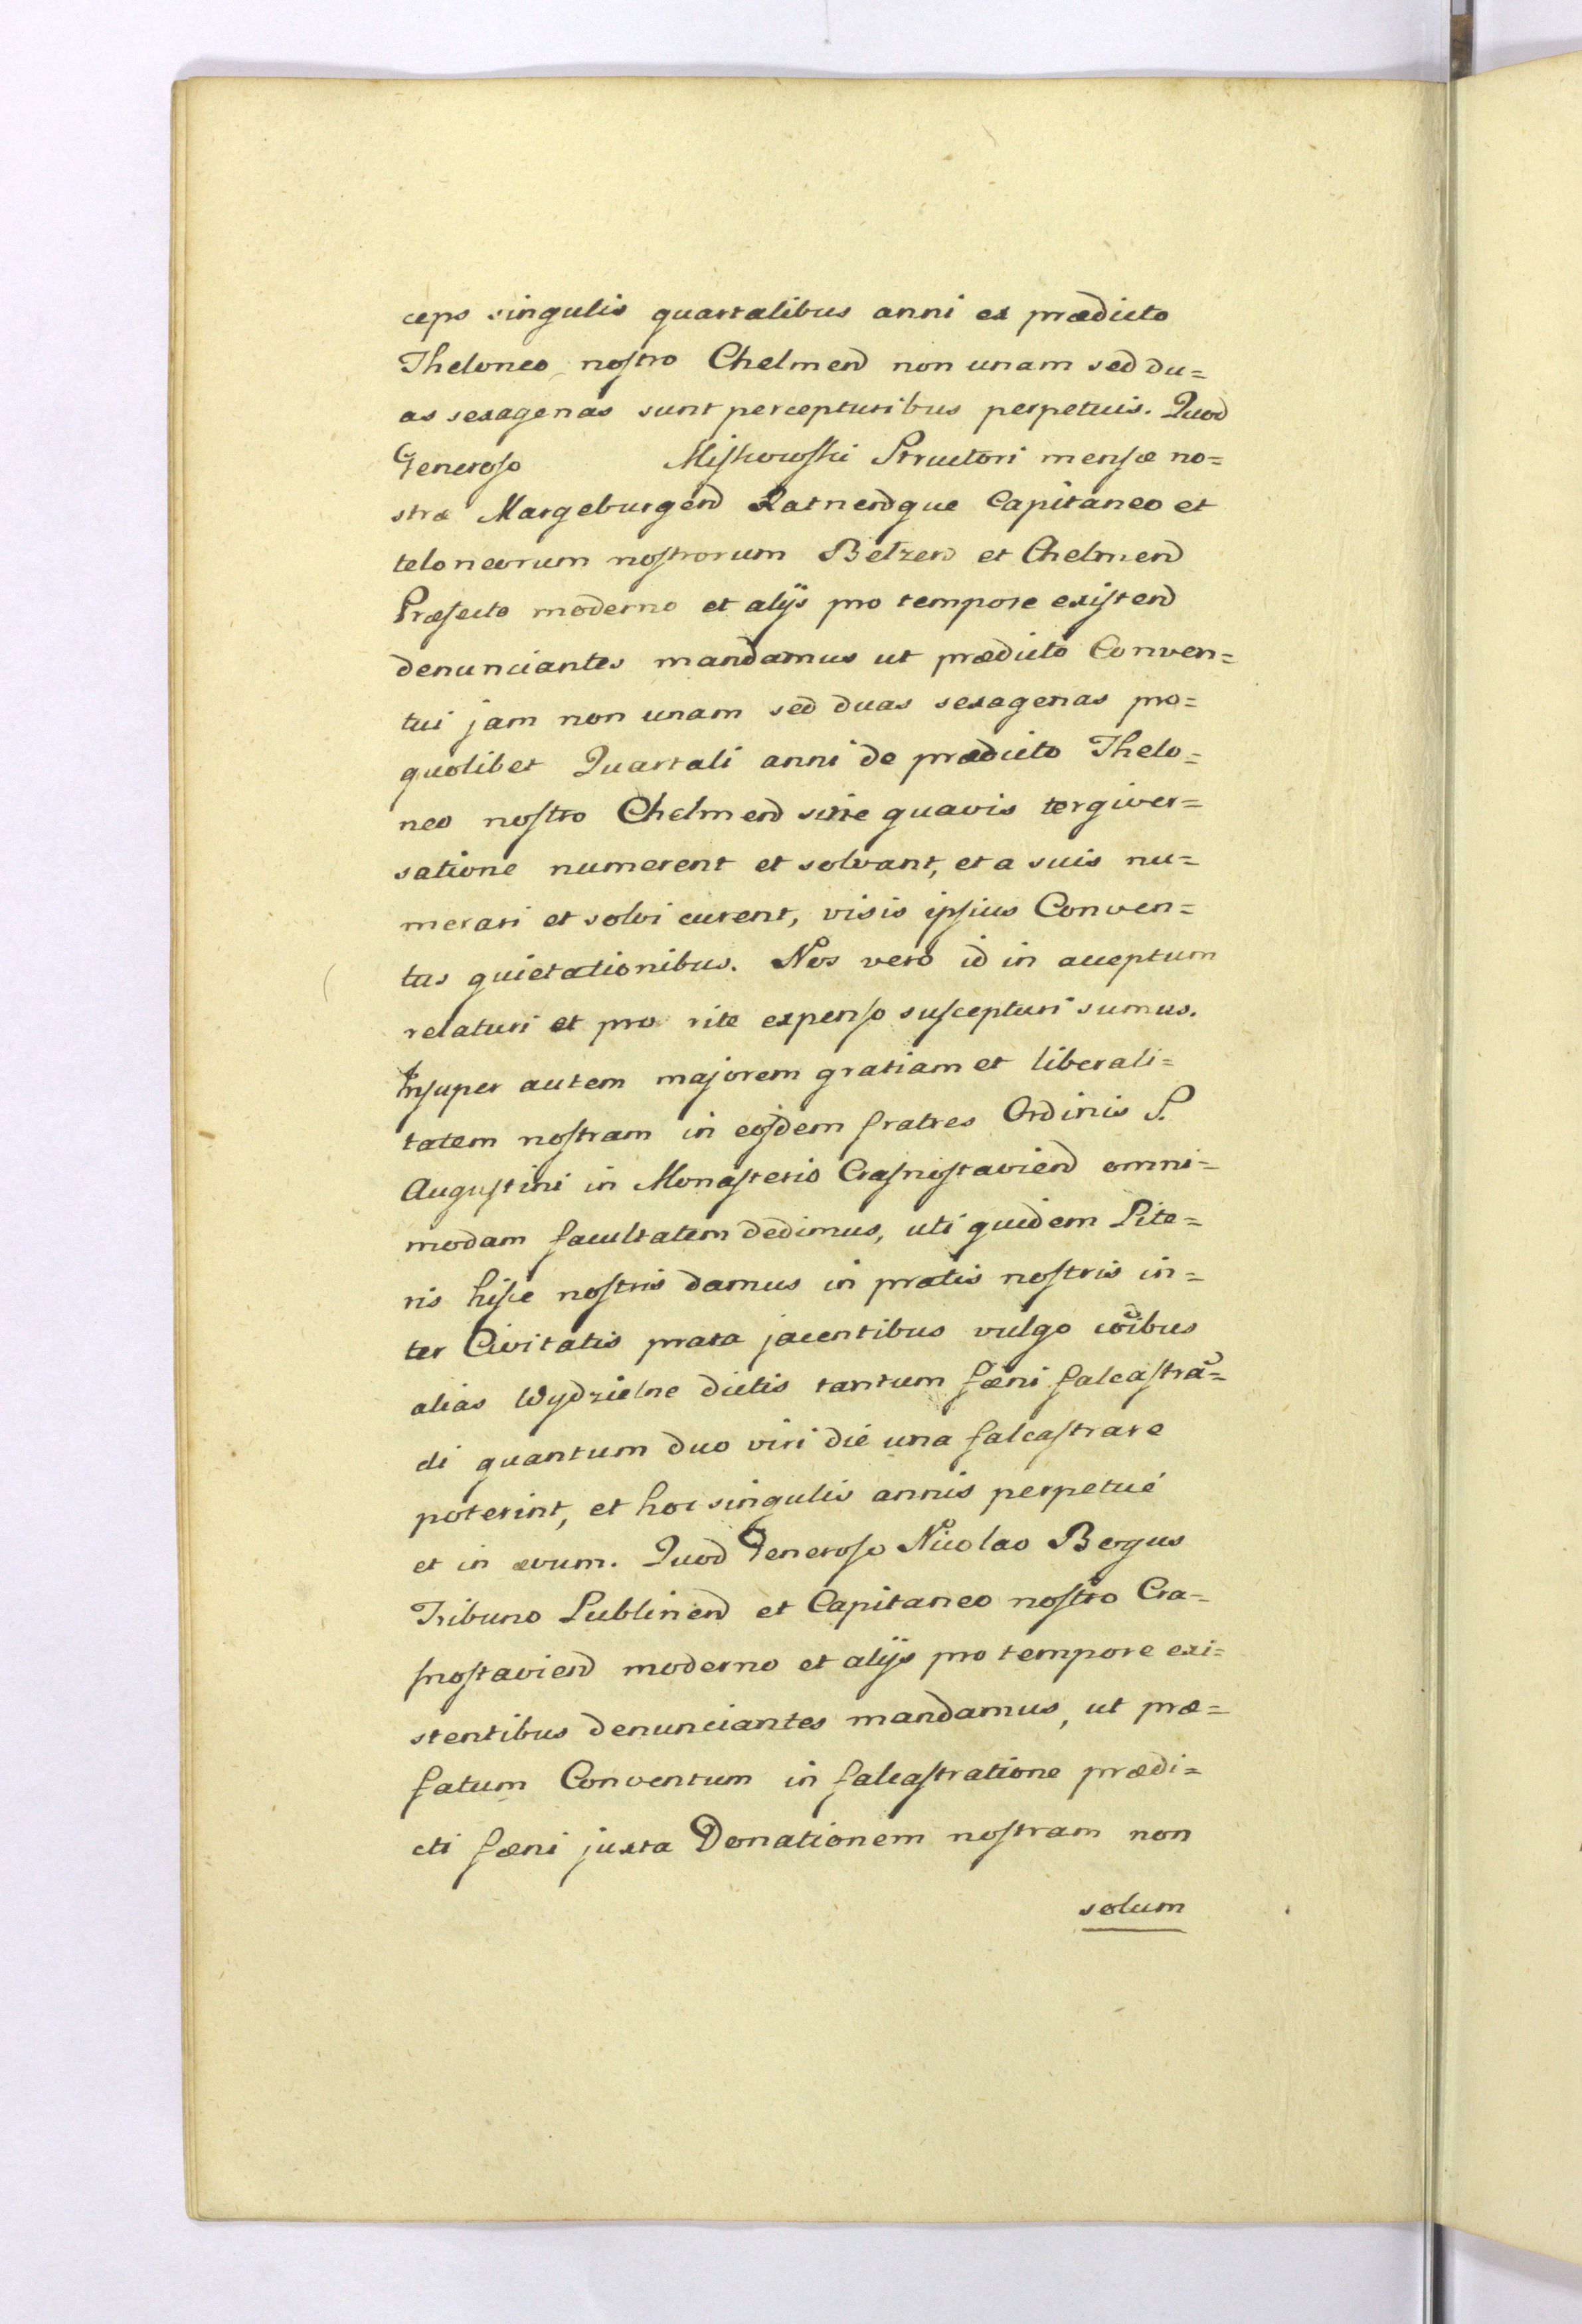 ceps singulis quartalibus anni ex prædicto
Theloneo nostro Chelmen̄ non unam sed du=
as sexagenas sunt percepturibus perpetuis. Quod
Generoso Miskowski Structori mensæ no=
stræ Margeburgen̄ Ratnen̄que Capitaneo et
teloneorum nostrorum Belzen̄ et Chelmen̄
Præfecto moderno et alijs pro tempore existen̄
denunciantes mandamus ut prædicto Conven=
tui jam non unam sed duas sexagenas pro=
quolibet Quartali anni de prædicto Thelo=
neo nostro Chelmen̄ sine quavis tergiver=
satione numerent et solvant, et a suis nu=
merari et solvi curent, visis ipsius Conven=
tus quietationibus. Nos vero id in acceptum
relaturi et pro rite expenso suscepturi sumus.
Insuper autem majorem gratiam et liberali=
tatem nostram in eosdem fratres Ordinis S.
Augustini in Monasterio Crasnostavien̄ omni=
modam facultatem dedimus, uti quidem Lite=
ris hisce nostris damus in pratis nostris in=
ter Civitatis prata jacentibus vulgo cōibus
alias Wydzielne dictis tantum fæni falcastrā=
di quantum duo viri die una falcastrare
poterint, et hoc singulis annis perpetué
et in ævum. Quod Generoso Nicolao Bergus
Tribuno Lublinen̄ et Capitaneo nostro Cra=
snostavien̄ moderno et alijs pro tempore exi=
stentibus denunciantes mandamus, ut præ=
fatum Conventum in falcastratione prædi=
cti fæni juxta Donationem nostram non
solum